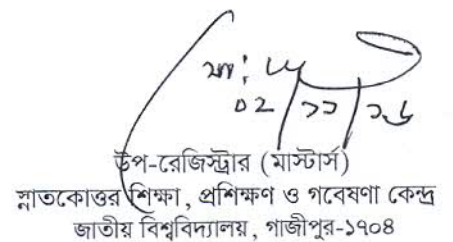 ০২/১১/১৬
উপ-রেজিস্ট্রার (মাস্টার্স)
স্নাতকোত্তর শিক্ষা, প্রশিক্ষণ ও গবেষণা কেন্দ্র
জাতীয় বিশ্ববিদ্যালয়, গাজীপুর-১৭০৪